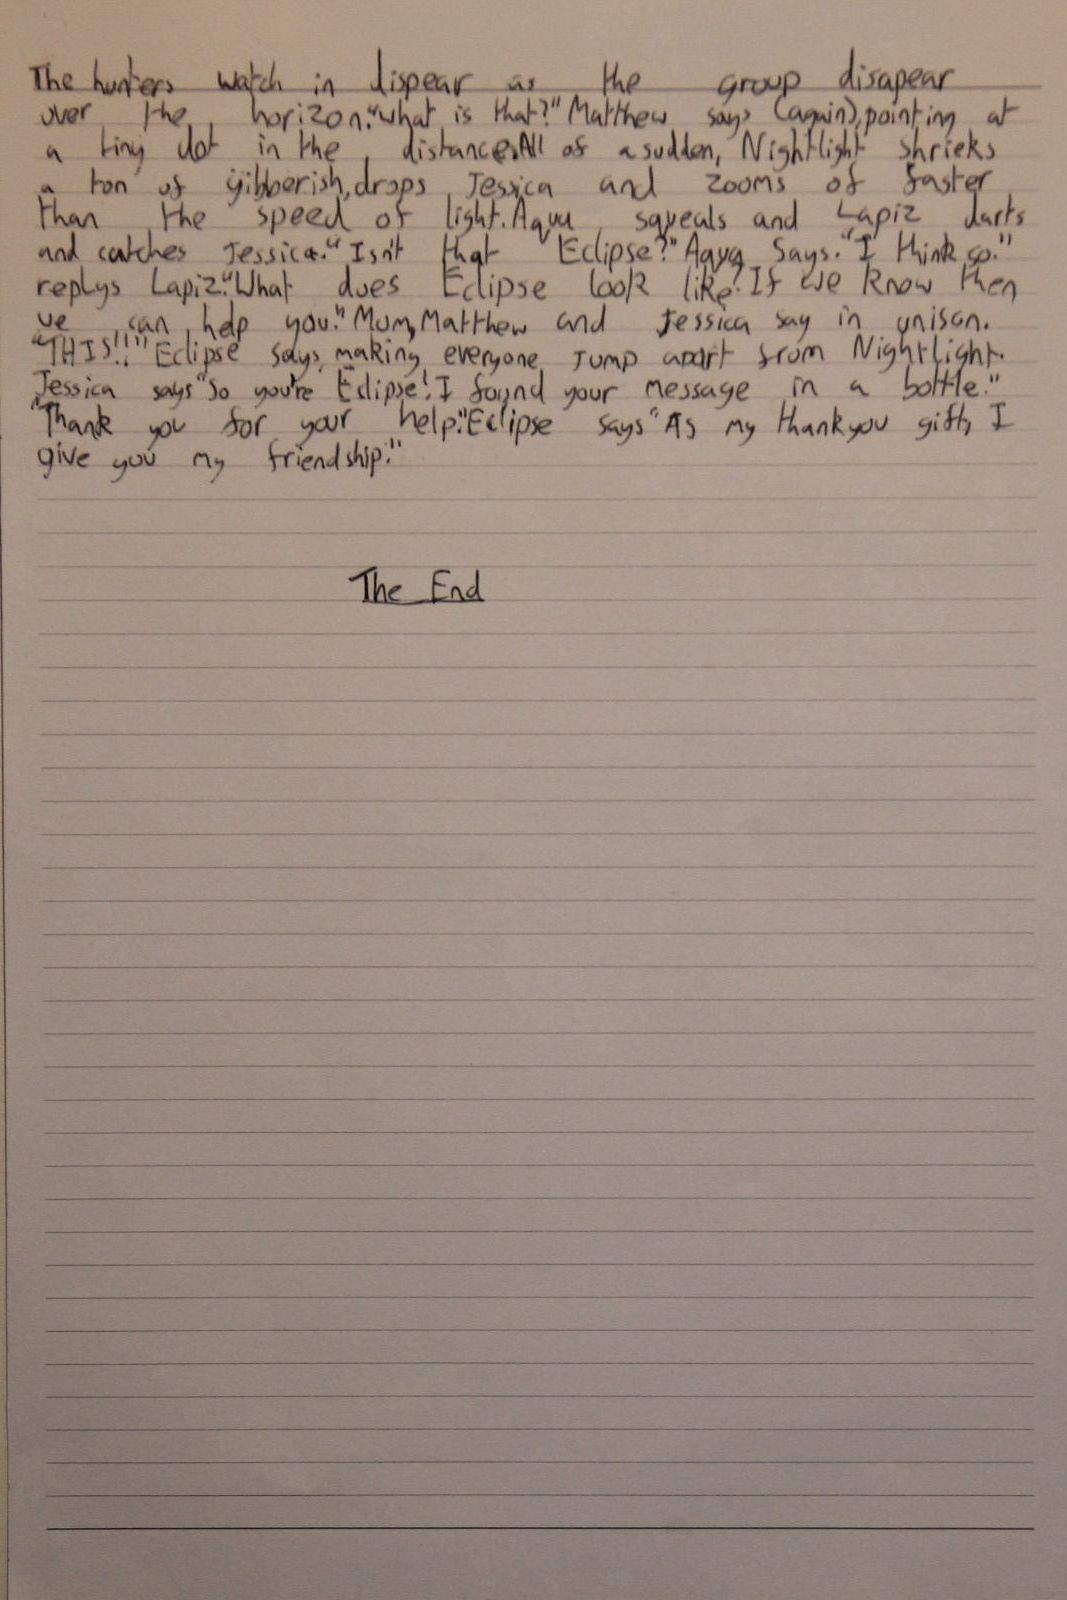 The hunters watch in dispear as the group disapear
over the horizon."What is that?" Matthew says (again), pointing at
a tiny dot in the distance. All of a sudden, Nightlight shrieks
a ton of gibberish, drops Jessica and zooms of faster
than the speed of light. Aqua squeals and Lapiz darts
and catches Jessica." Isn't that Eclipse?" Aqua says. "I think so."
replys Lapiz."What does Eclipse look like? If we know then
we can help you." Mum, Matthew and Jessica say in unison.
"THIS!!!" Eclipse says, making everyone jump apart from Nightlight.
Jessica says "So you're Eclipse! I found your message in a bottle."
"Thank you for your help." Eclipse says "As my thankyou gift, I
give you my friendship."
The End